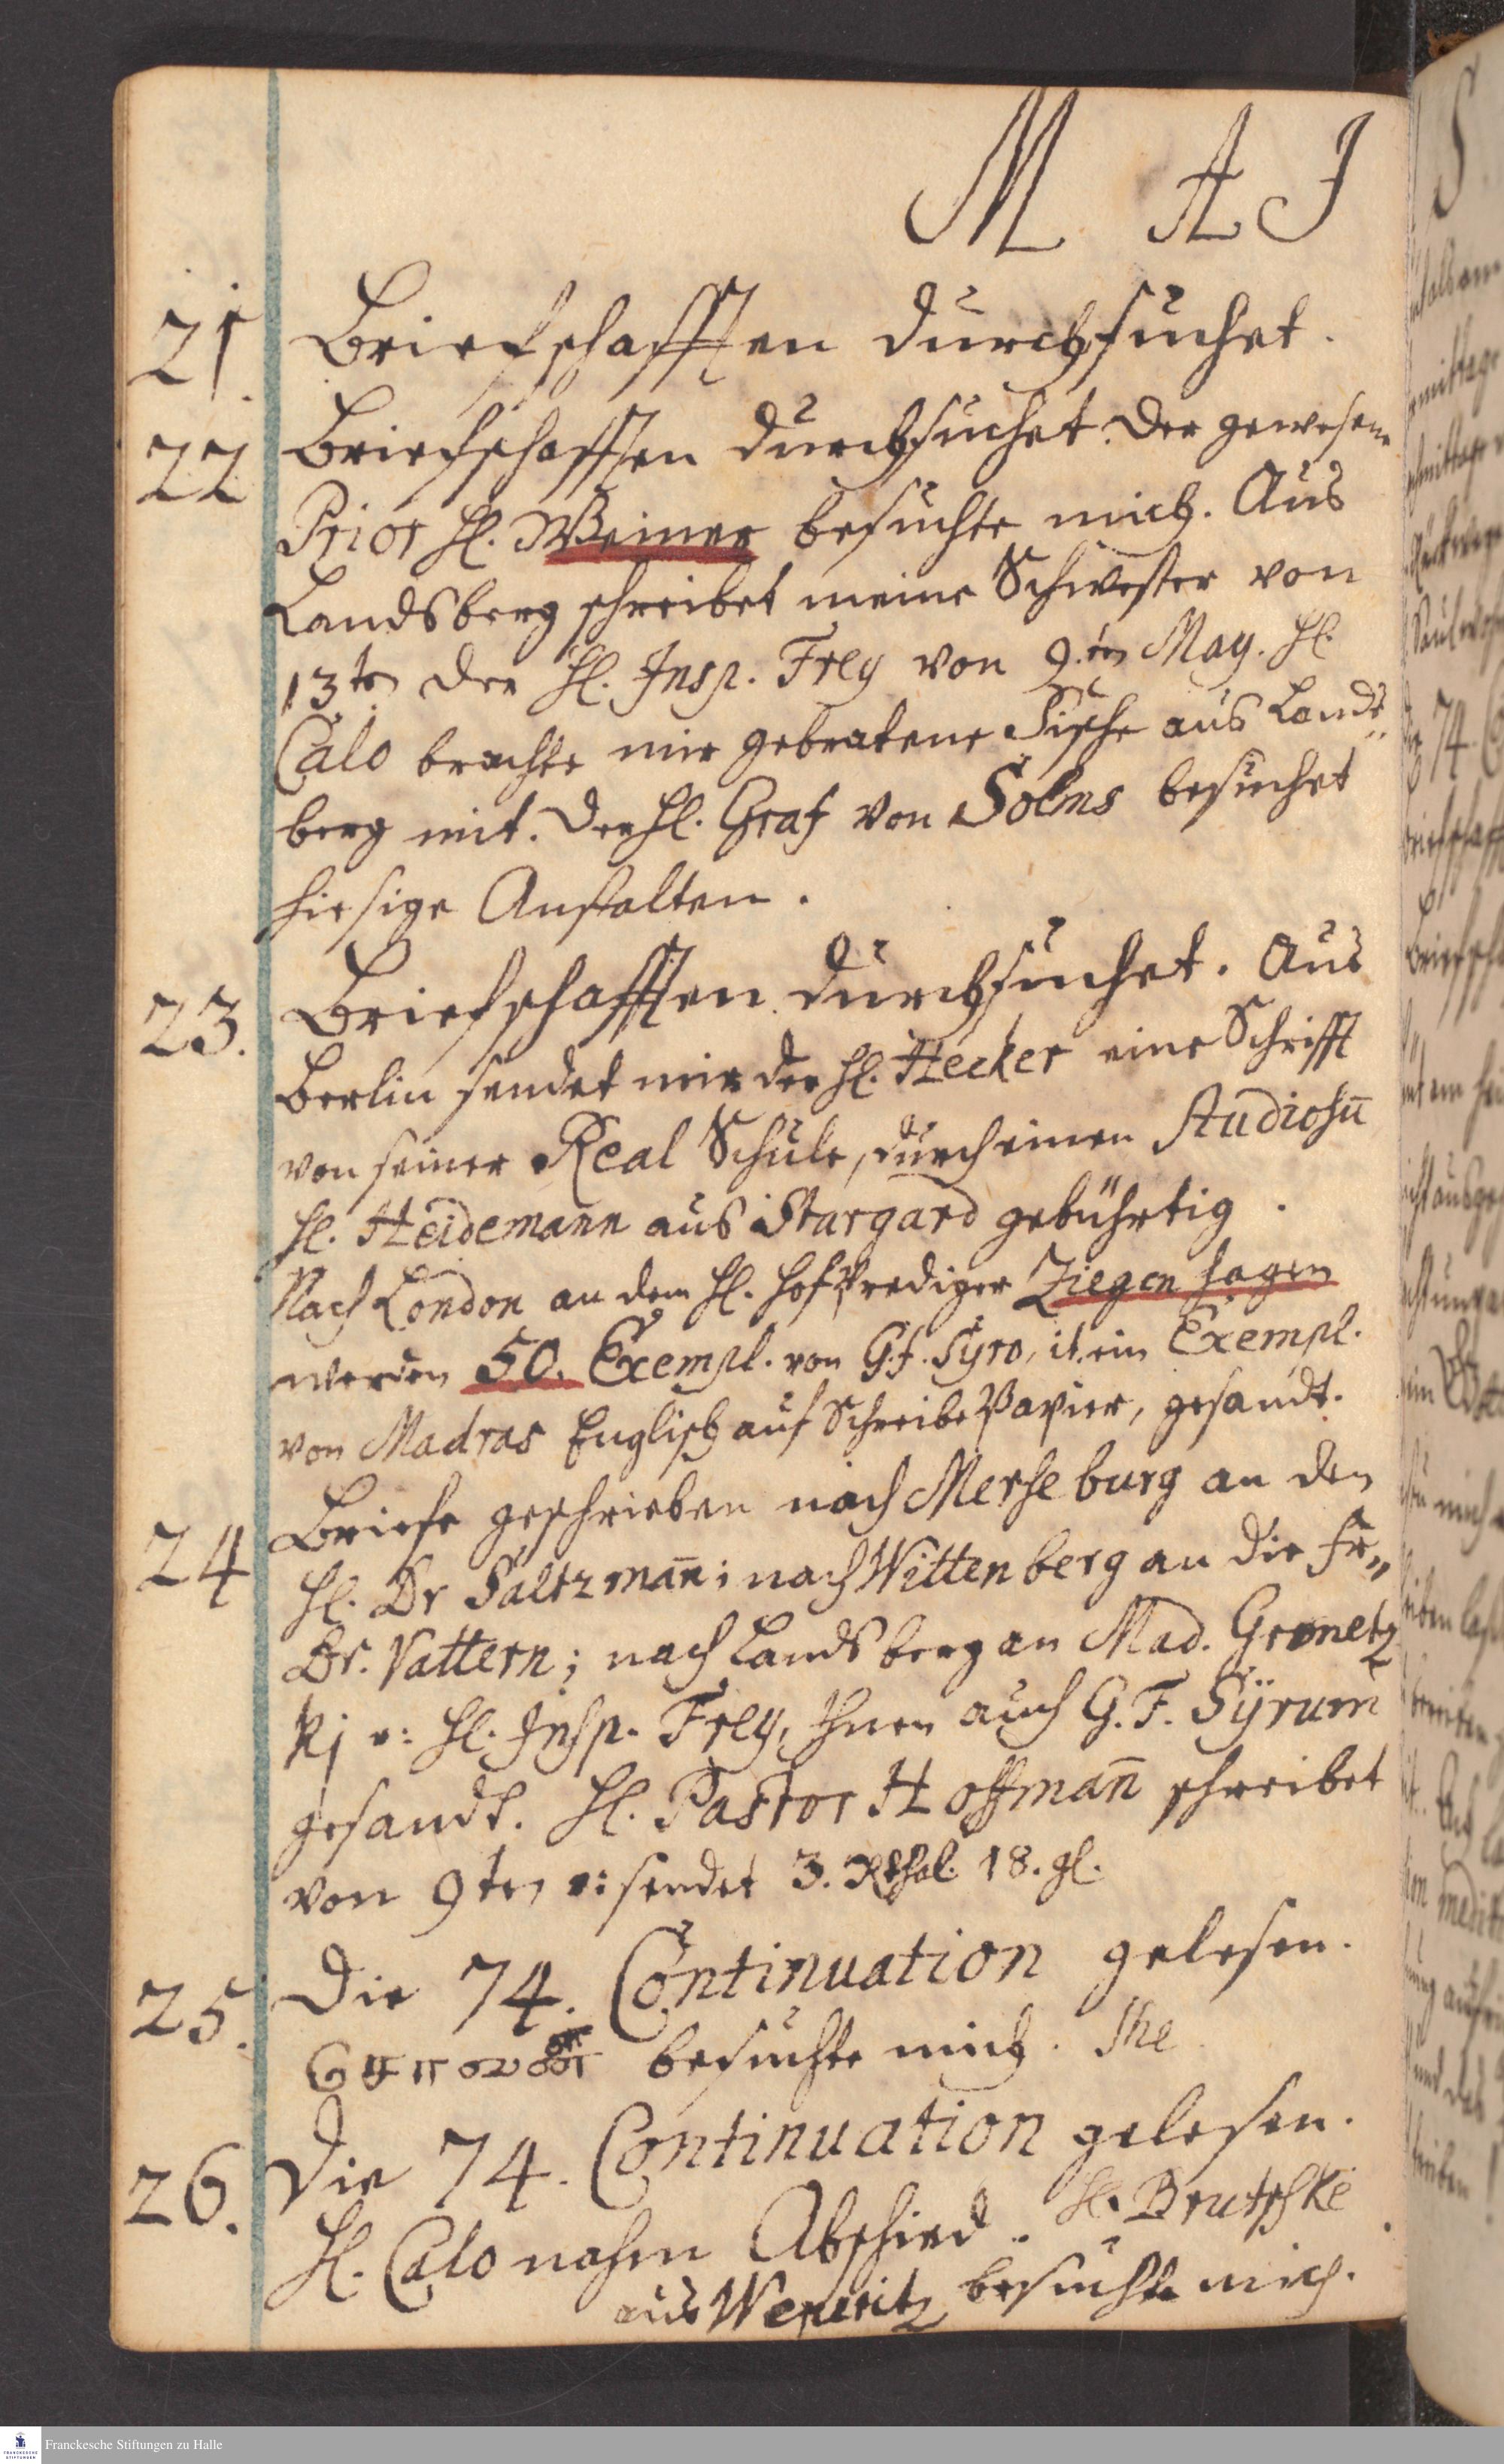 M A J
21. Briefschafften durchsuchet.
22 Briefschafften durchsuchet. Der gewesene
Prior H. Weiner besuchte mich. Aus
Landsberg schreibet meine Schwester von
13ten der H. Insp. Frey von 9.ten May. H.
Calo brachte mir gebratene Fische aus Lands„
berg mit. Der H. Graf von Solms besuchet
hiesige Anstalten.
23. Briefschafften durchsuchet. Aus
Berlin sendet mir der H. Hecker eine Schrifft
von seiner Real Schule, durch einen Studiosū
H. Heidemann aus Stargard gebührtig.
Nach London an dem H. HofPrediger Ziegenhagen
werden 50. Exempl. von G. f. Syro, it. ein Exempl.
von Madras Englisch auf SchreibePapier, gesandt.
24 Briefe geschrieben nach Merseburg an den
H. Dr Saltzman̄; nach Wittenberg an die Fr„
Dr. Vattern; nach Landsberg an Mad. Gronetz
Kj u: H. Insp. Frey, Ihnen auch G. F. Syrum
gesandt. H. Pastor Hoffman̄ schreibet
von 9ten u: sendet 3. Rthal. 18. gl.
25. Die 74. Continuation gelesen.
besuchte mich.
26. Die 74. Continuation gelesen.
H. Calo nahm Abschied. H. Brutschke
aus besuchte mich.
Franckesche Stiftungen zu Halle